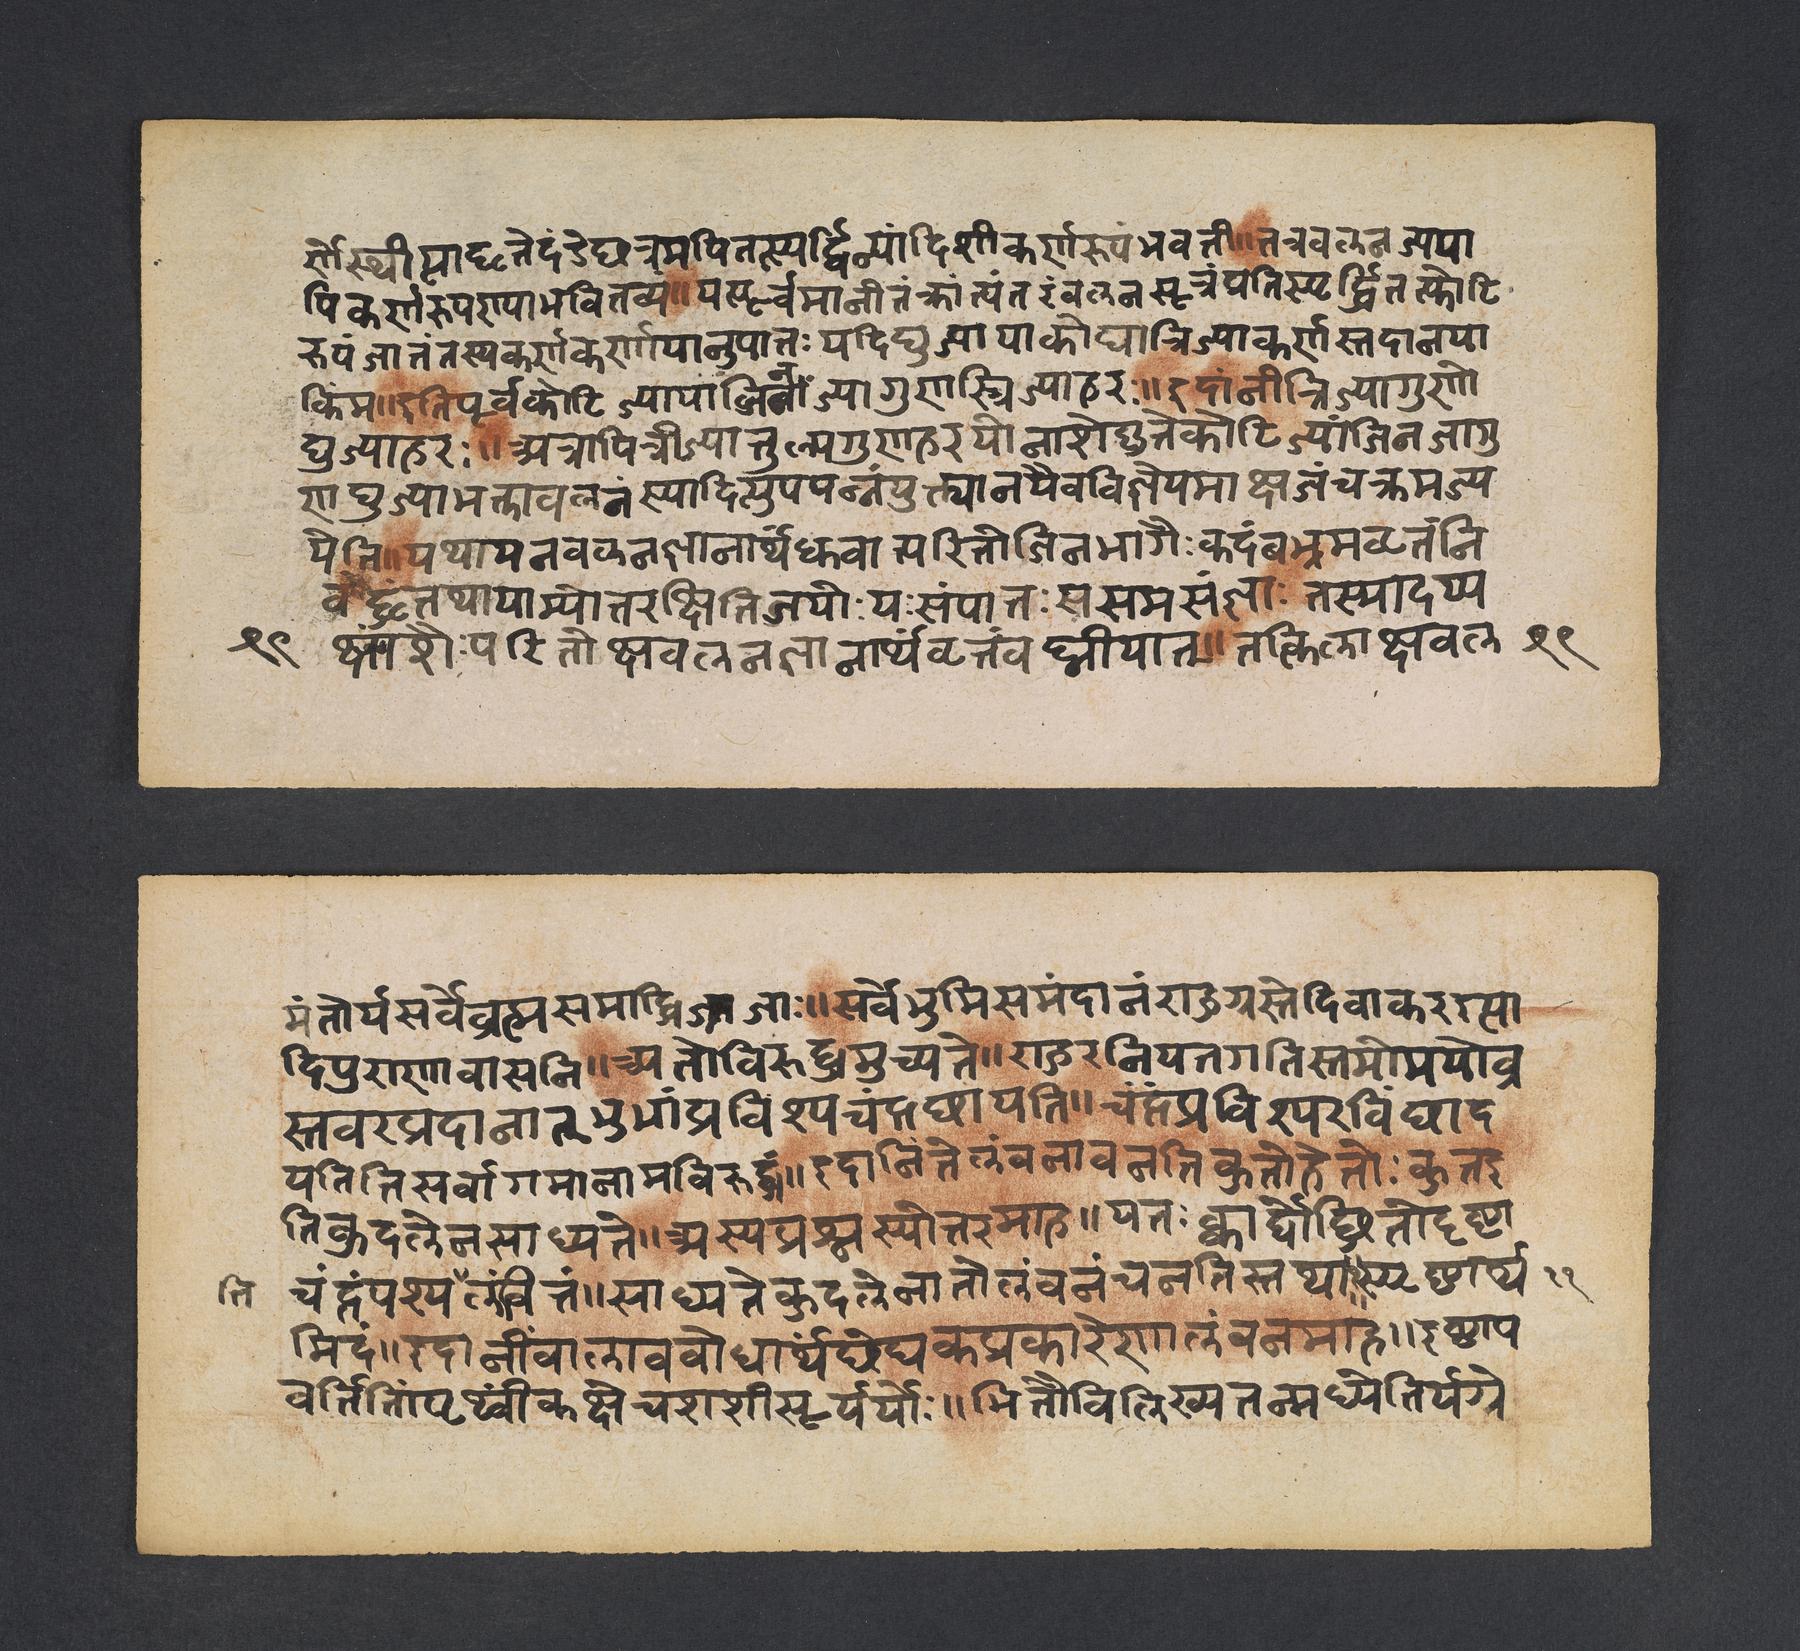 र्णोस्थीत्पाद्यतेदंडेद्यत्रमपितस्यर्द्धिज्यांदिशीकर्णरूपंभवती॥तत्रवलनज्यपा
पिकर्णरुपरापाभवितव्य॥पत्पूर्वमानीतंक्रांत्यंतरंवलनसूत्रंपतिस्पर्द्धितत्कोटि
रूपंजातंतस्यकर्णकर्णापानुपातः पदिद्युज्यापाकोद्यात्रिज्याकर्णस्तदानपा
किंम॥इतिपूर्वकोटिज्यापांजिनांज्यागुरास्त्रिज्याहर:॥इदांनीत्रिज्यागुणो
द्युज्याहरः॥अत्रापित्रीज्यातुल्यगुणहरयोनाशेद्युतेकोटिज्यांजिनजागु
णाद्युज्याभक्तावलनंस्यादित्युपपन्नंपुत्त्यानयैवविशेपमाक्षजंचक्रमज्य
पेति॥पथायनवलनज्ञानार्थंध्रुवात्परितोजिनभागैःकदंबभ्रमवृत्तंनि
वद्धंतथापाम्योत्तरक्षितिजयोःपःसंपातःससमसंज्ञाःतस्मादप्य
१९ क्षांशैःपरितोक्षवलनज्ञानार्थंवृत्तंवघ्नीयात्॥तत्किलाक्षवल १९
मंतोर्यसर्वेब्रह्मसमाद्विजाः॥सर्वेभुमिसमंदानंराहुग्रस्तेदिवाकरइत्पा
दिपुराणवासनि॥अतोविरुद्धमुच्यते॥राहुरनियतगतिस्तमोमयोब्र
स्तवरप्रदानात्भुभांप्रविश्पचंद्रंछापति॥चंद्रंप्रविश्परविंछाद
पतितिसर्वागमानामविरुद्धं॥इदानिंतेलंवनावनतिकुतोहेतोःकुतइ
तिकुदलेनसाध्यते॥अस्यप्रश्नस्योत्तरमाह॥पतःक्वार्द्धोछ्रितोदृष्टा
ति चंद्रंपश्पलंवीतं॥साध्यतेकुदलेनातोलंवनंचनतिस्तथास्पष्टार्थ ११
मिदं॥इदानींवालाववोधार्थंछेद्यकप्रकारेणालंवनमाह॥इष्टाप
वर्त्तितांपृथ्वींकक्षेचशशीसूर्यर्योः॥भित्तौविलिख्यतन्मध्येतिर्यग्रे